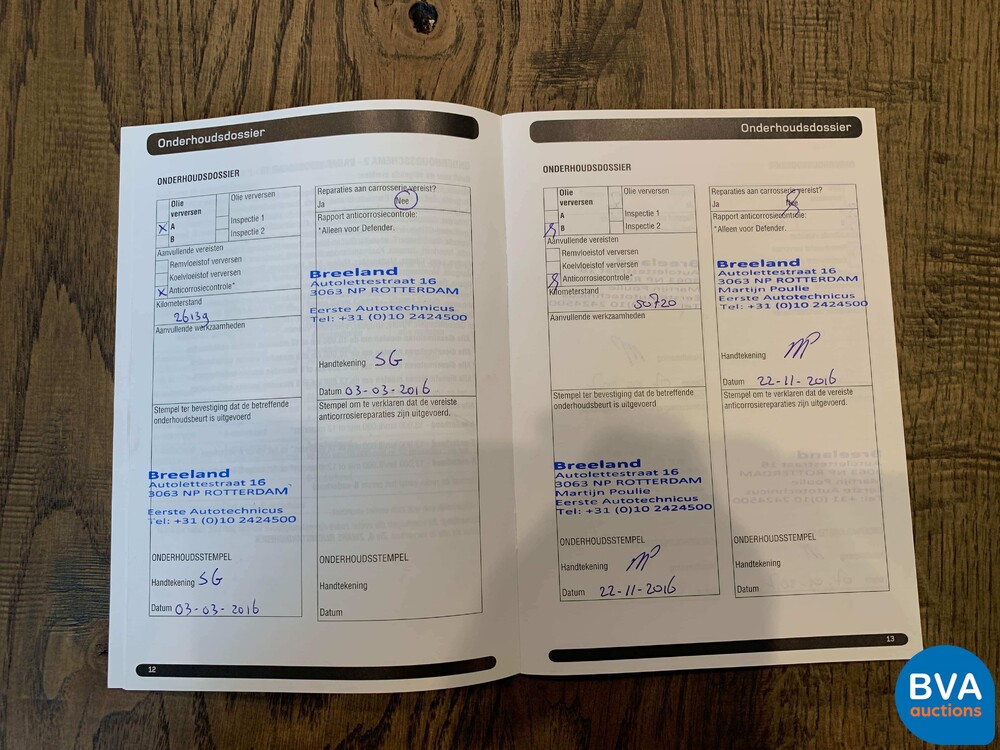 Onderhoudsdossier
ONDERHOUDSDOSSIER
Olie verversen
A
B
Olie verversen
Inspectie 1
Inspectie 2
Aanvullende vereisten
Remvloeistof verversen
Koelvloeistof verversen
Anticorrosiecontrole*
Kilometerstand
26139
Aanvullende werkzaamheden
Stempel ter bevestiging dat de betreffende
onderhoudsbeurt is uitgevoerd
Breeland
Autolettestraat 16
3063 NP ROTTERDAM
Eerste Autotechnicus
Tel: +31 (0)10 2424500
ONDERHOUDSSTEMPEL
Handtekening SG
Datum 03-03-2016
Reparaties aan carrosserie vereist?
Ja Nee
Rapport anticorrosiecontrole:
*Alleen voor Defender.
Breeland
Autolettestraat 16
3063 NP ROTTERDAM
Eerste Autotechnicus
Tel: +31 (0)10 2424500
Handtekening SG
Datum 03-03-2016
Stempel om te verklaren dat de vereiste
anticorrosiereparaties zijn uitgevoerd.
ONDERHOUDSSTEMPEL
Handtekening
Datum
12
Onderhoudsdossier
ONDERHOUDSDOSSIER
Olie
verversen
A
B
Olie verversen
Inspectie 1
Inspectie 2
Aanvullende vereisten
Remvloeistof verversen
Koelvloeistof verversen
Anticorrosiecontrole*
Kilometerstand
50720
Aanvullende werkzaamheden
Stempel ter bevestiging dat de betreffende
onderhoudsbeurt is uitgevoerd
Breeland
Autolettestraat 16
3063 NP ROTTERDAM
Martijn Poulie
Eerste Autotechnicus
Tel: +31 (0)10 2424500
ONDERHOUDSSTEMPEL
Handtekening MP
Datum 22-11-2016
Reparaties aan carrosserie vereist?
Ja Nee
Rapport anticorrosiecontrole:
*Alleen voor Defender.
Breeland
Autolettestraat 16
3063 NP ROTTERDAM
Martijn Poulie
Eerste Autotechnicus
Tel: +31 (0)10 2424500
Handtekening MP
Datum 22-11-2016
Stempel om te verklaren dat de vereiste
anticorrosiereparaties zijn uitgevoerd.
ONDERHOUDSSTEMPEL
Handtekening
Datum
13
BVA
auctions